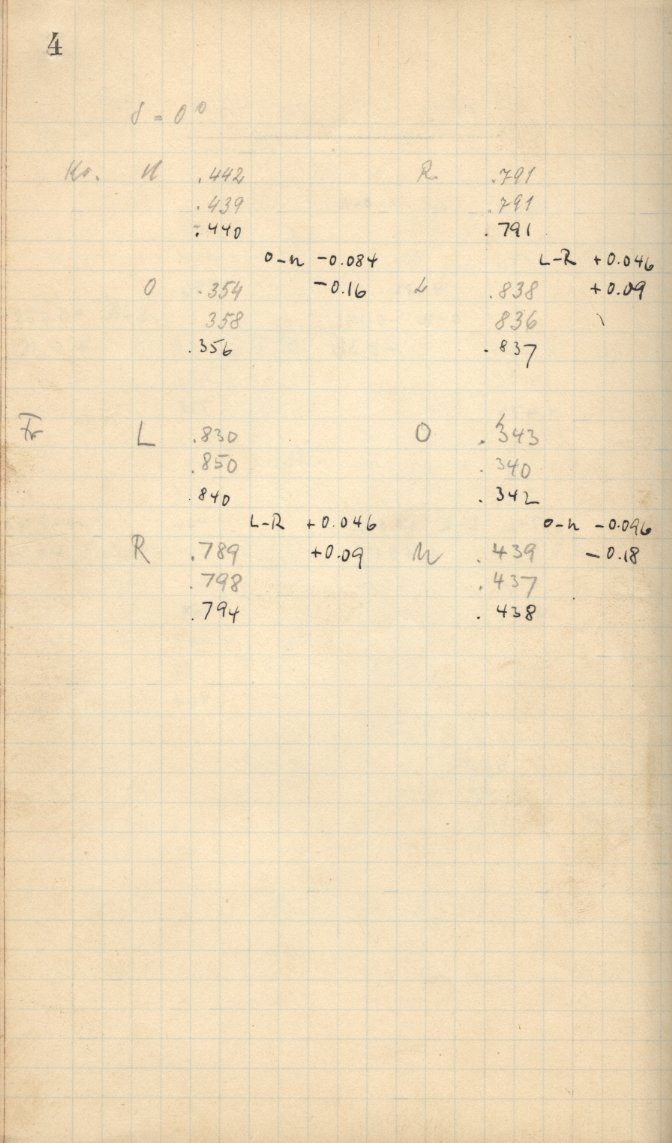 4
δ = 0°
Ko. U .442 R .791
.439 .791
.440 .791
O-U -0.084 L-R +0.046
O .354 -0.16 L .838 +0.09
358 836
.356 .837
Fr L .830 O .343
.850 .340
.840 .342
L-R +0.046 O-U -0.096
R .789 +0.09 U .439 -0.18
.798 .437
.794 .438